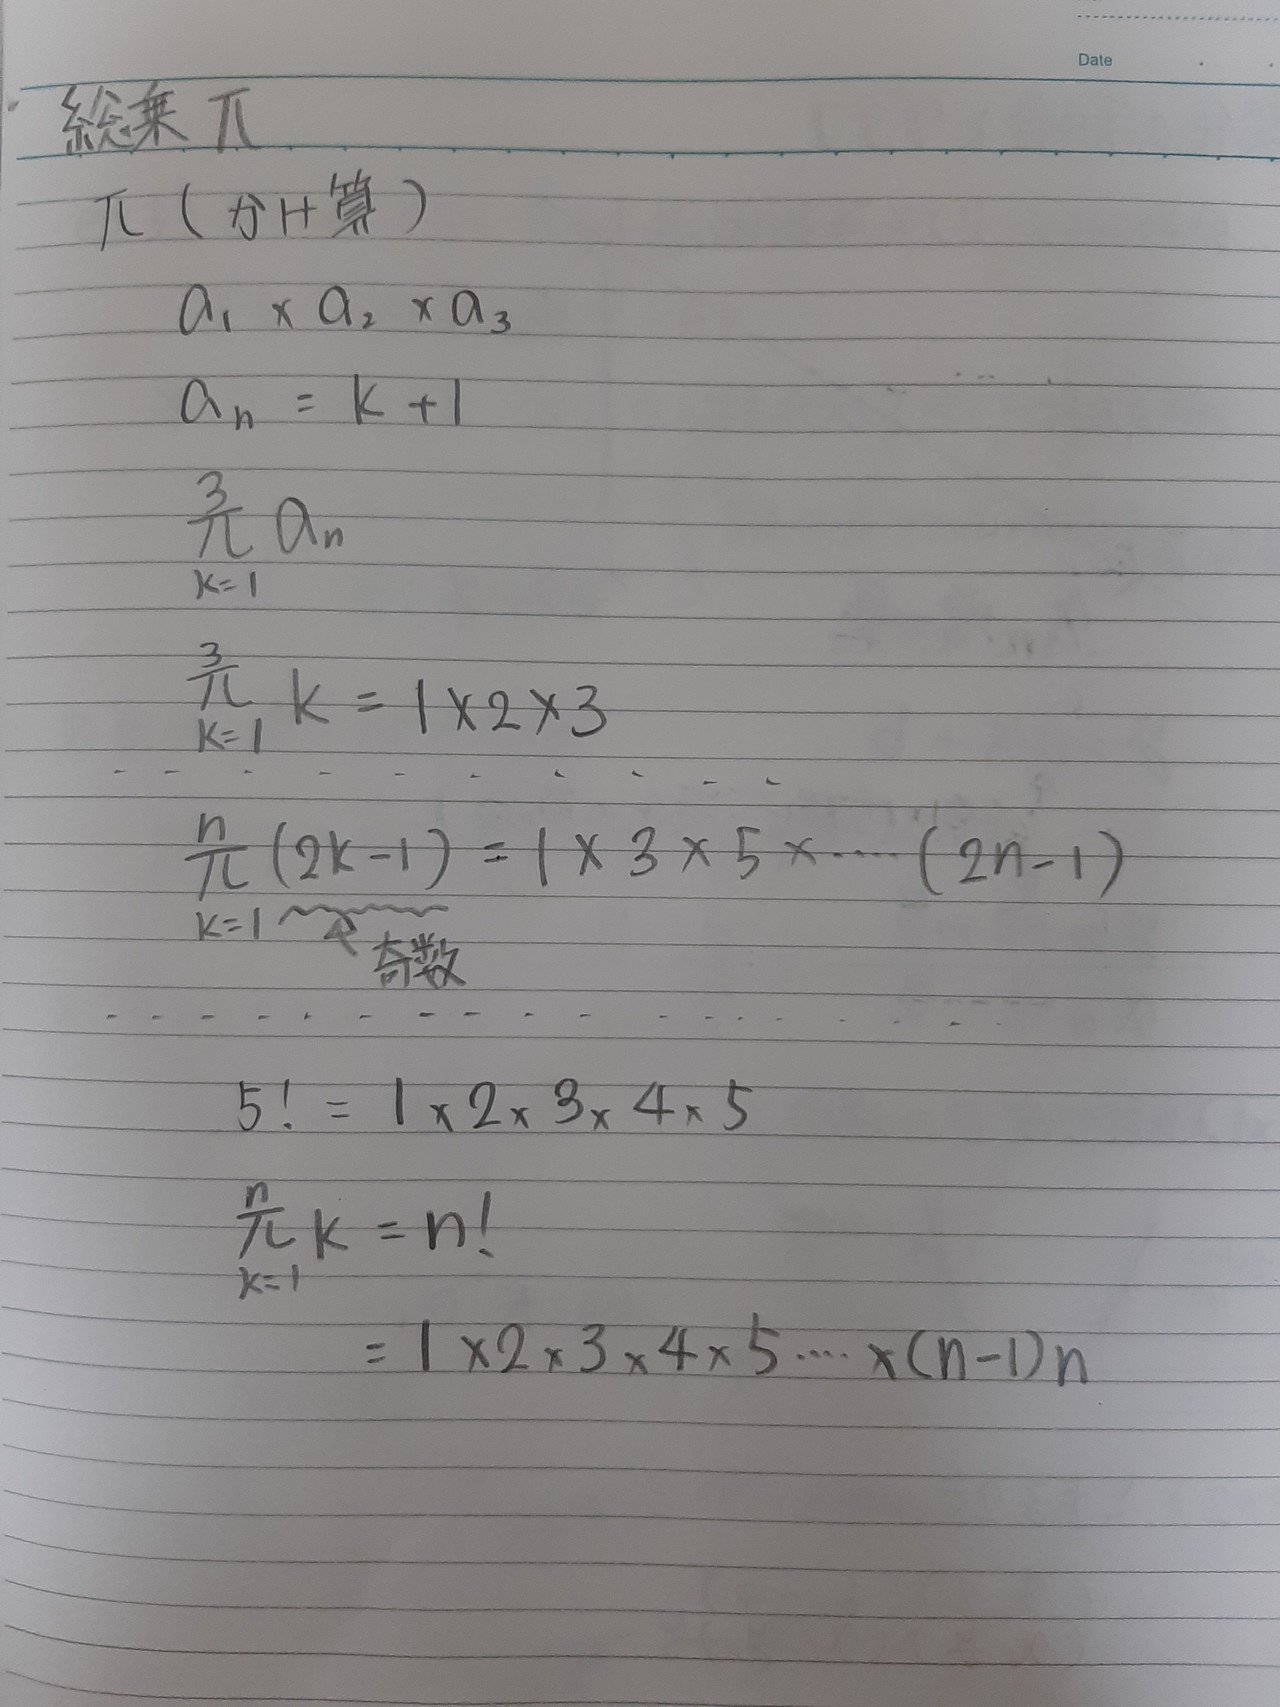 Date
総乗 π
π (かけ算)
a₁ × a₂ × a₃
aₙ = k + 1
3
π aₙ
k=1
3
π k = 1×2×3
k=1
n
π (2k-1) = 1 × 3 × 5 × ‥‥ (2n-1)
k=1
奇数
5! = 1 × 2 × 3 × 4 × 5
n
π k = n!
k=1
= 1 × 2 × 3 × 4 × 5 ‥‥ × (n-1)n